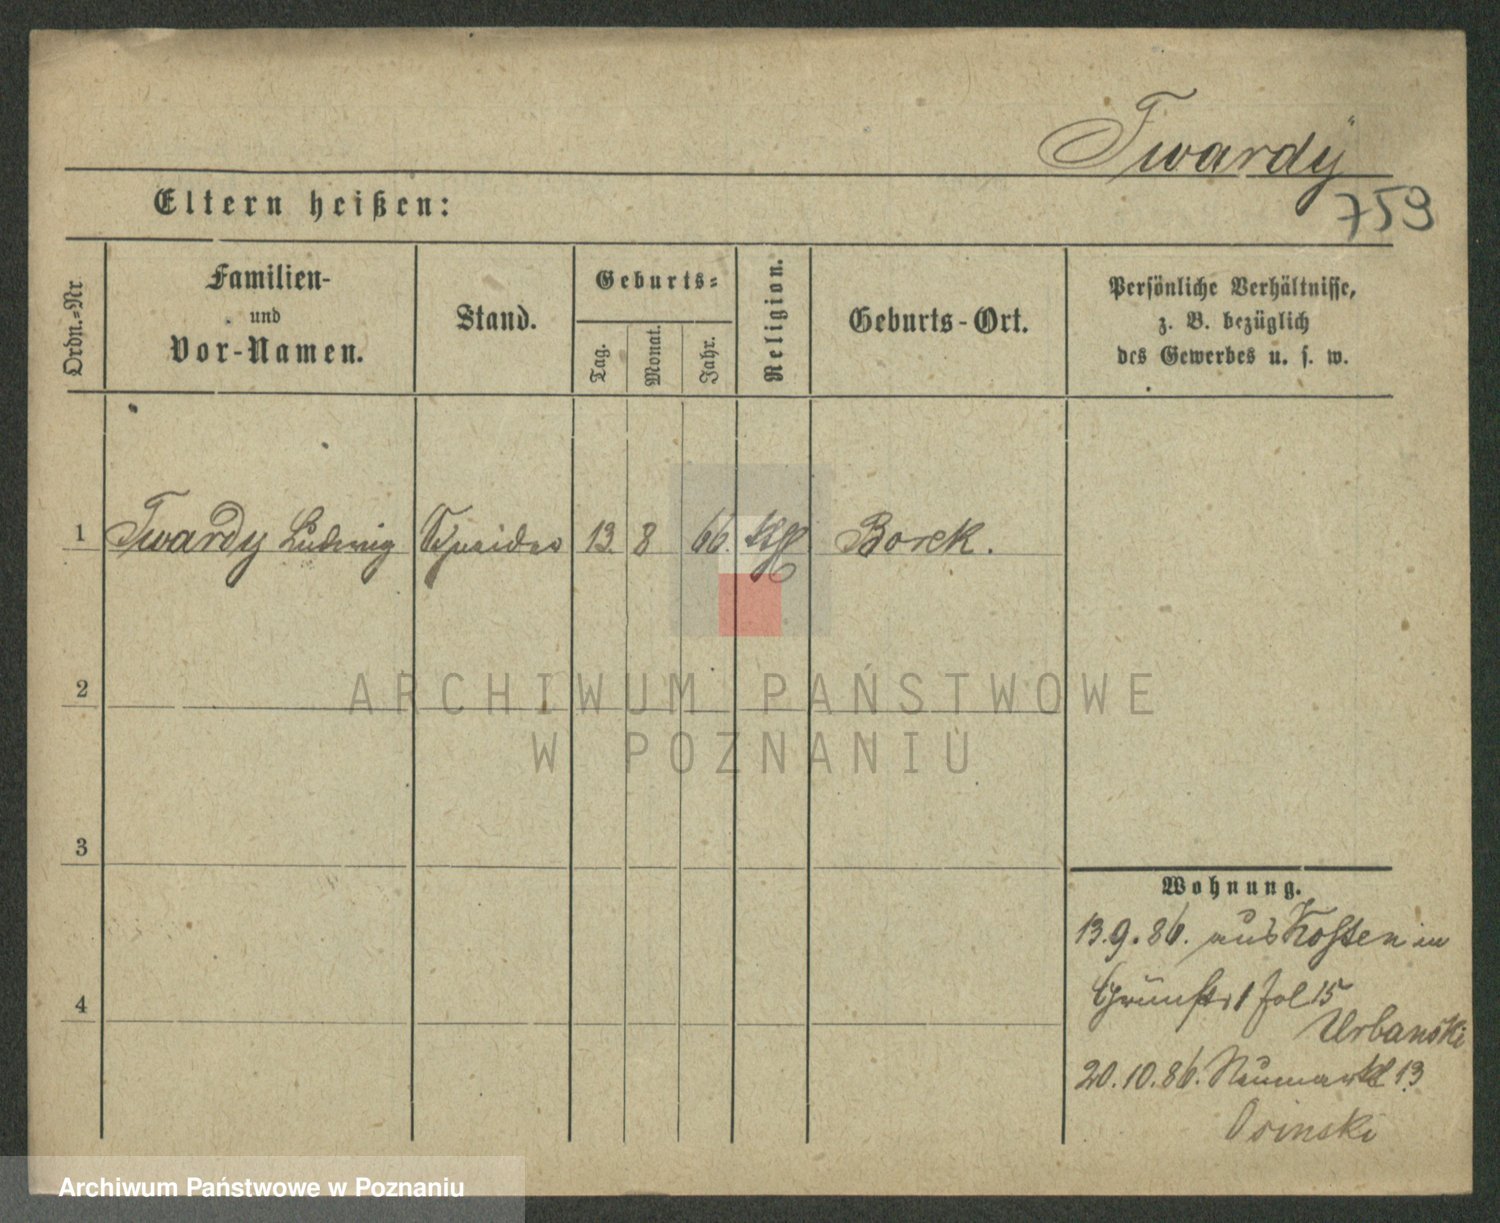 Twardy
759
Eltern heißen:
Ordn.=Nr.
Familien-
und
Vor-Namen.
Stand.
Geburts=
Tag.
Monat.
Jahr.
Religion.
Geburts-Ort.
Persönliche Verhältnisse,
z. B. bezüglich
des Gewerbes u. s. w.
1 Twardy Ludwig Schneider 13. 8 66. kth Borek.
2
3
4
Wohnung.
13.9.86. aus Kosten in
Grünstr 1 fol 15
Urbanski
20.10.86. Neumarkt 13
Osinski
ARCHIWUM PAŃSTWOWE
W POZNANIU
Archiwum Państwowe w Poznaniu